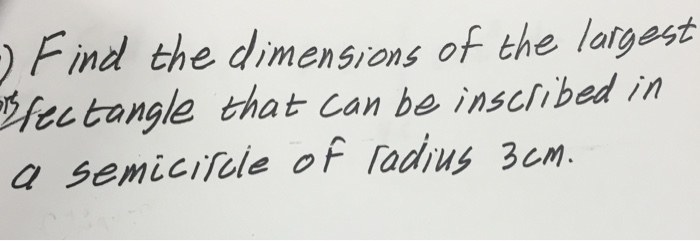 ) Find the dimensions of the largest
rectangle that can be inscribed in
a semicircle of radius 3cm.